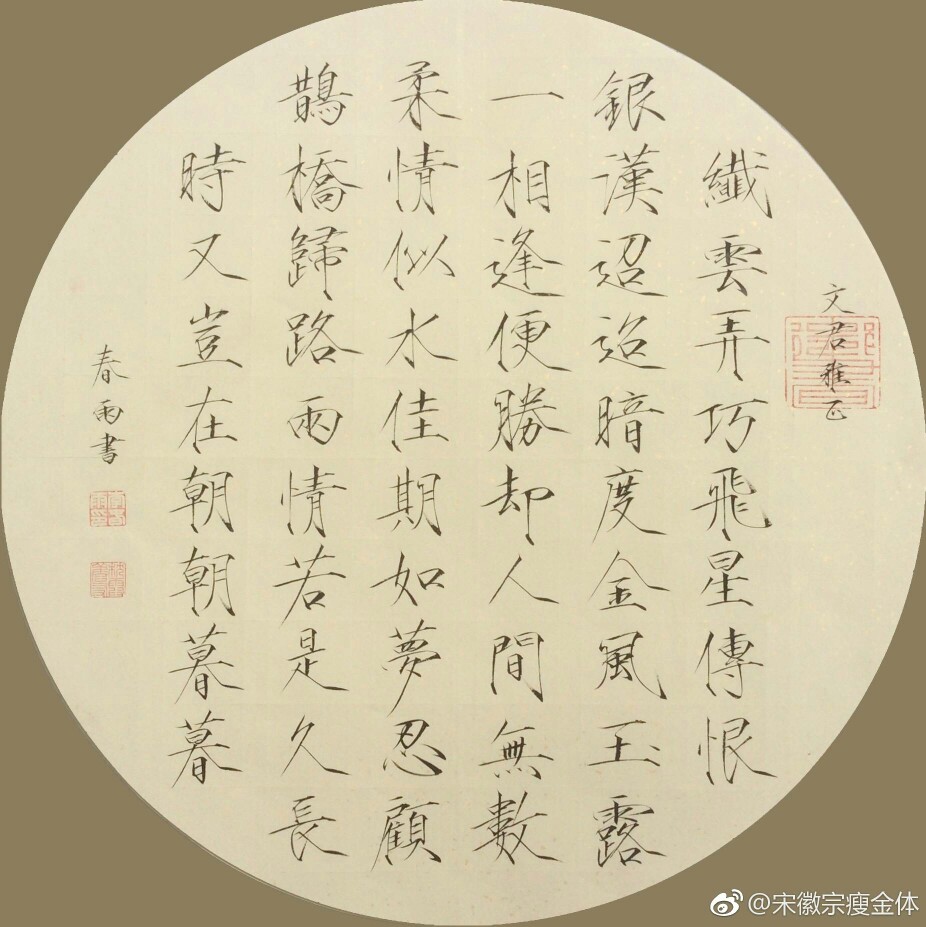 文君雅正
纖雲弄巧飛星傳恨
銀漢迢迢暗度金風玉露
一相逢便勝却人間無數
柔情似水佳期如夢忍顧
鵲橋歸路兩情若是久長
時又豈在朝朝暮暮
春雨書
@宋徽宗瘦金体